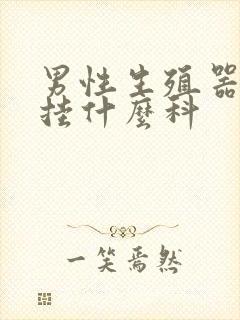 男性生殖器
挂什麼科
一笑焉然